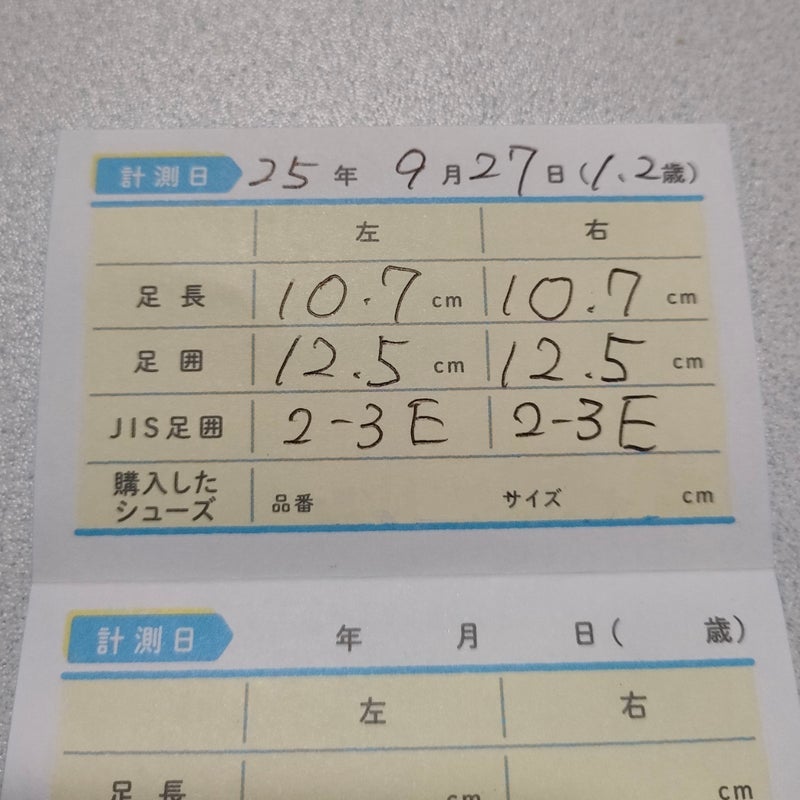 計測日 25年 9月27日(1.2歳)
左 右
足長 10.7cm 10.7cm
足囲 12.5cm 12.5cm
JIS足囲 2-3E 2-3E
購入した
シューズ 品番 サイズ cm
計測日 年 月 日( 歳)
左 右
足長 cm cm